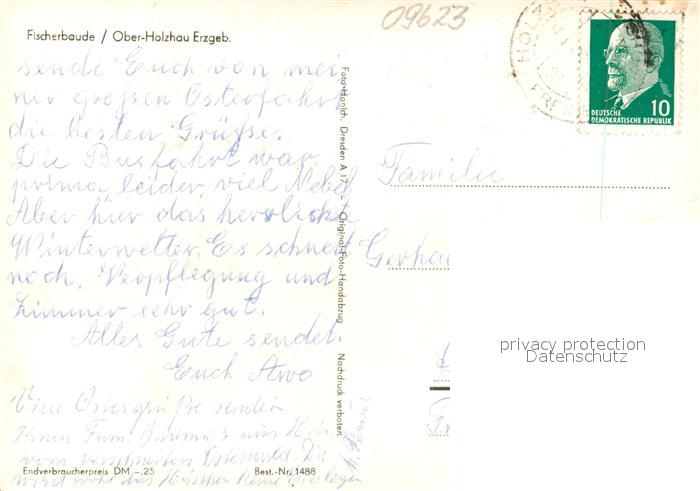 09623
Fischerbaude / Ober-Holzhau Erzgeb.
sende Euch von mei
ner großen Osterfahrt
die besten Grüße.
Die Busfahrt war
prima, leider, viel Nebel
Aber hier das herrlichste
Winterwetter. Es schneit
noch. Verpflegung und
Zimmer sehr gut.
Alles Gute sendet
Euch Arno
Viele Ostergrüße sendet
Ihnen Fam.
vom verschneiten Osterwald. Da
wird wohl das Häschen keine Eier legen
Endverbraucherpreis DM –.25
Best.-Nr. 1488
Foto-Handabzug – Nachdruck verboten
HOLZHAU
DEUTSCHE
DEMOKRATISCHE REPUBLIK
10
Familie
privacy protection
Datenschutz